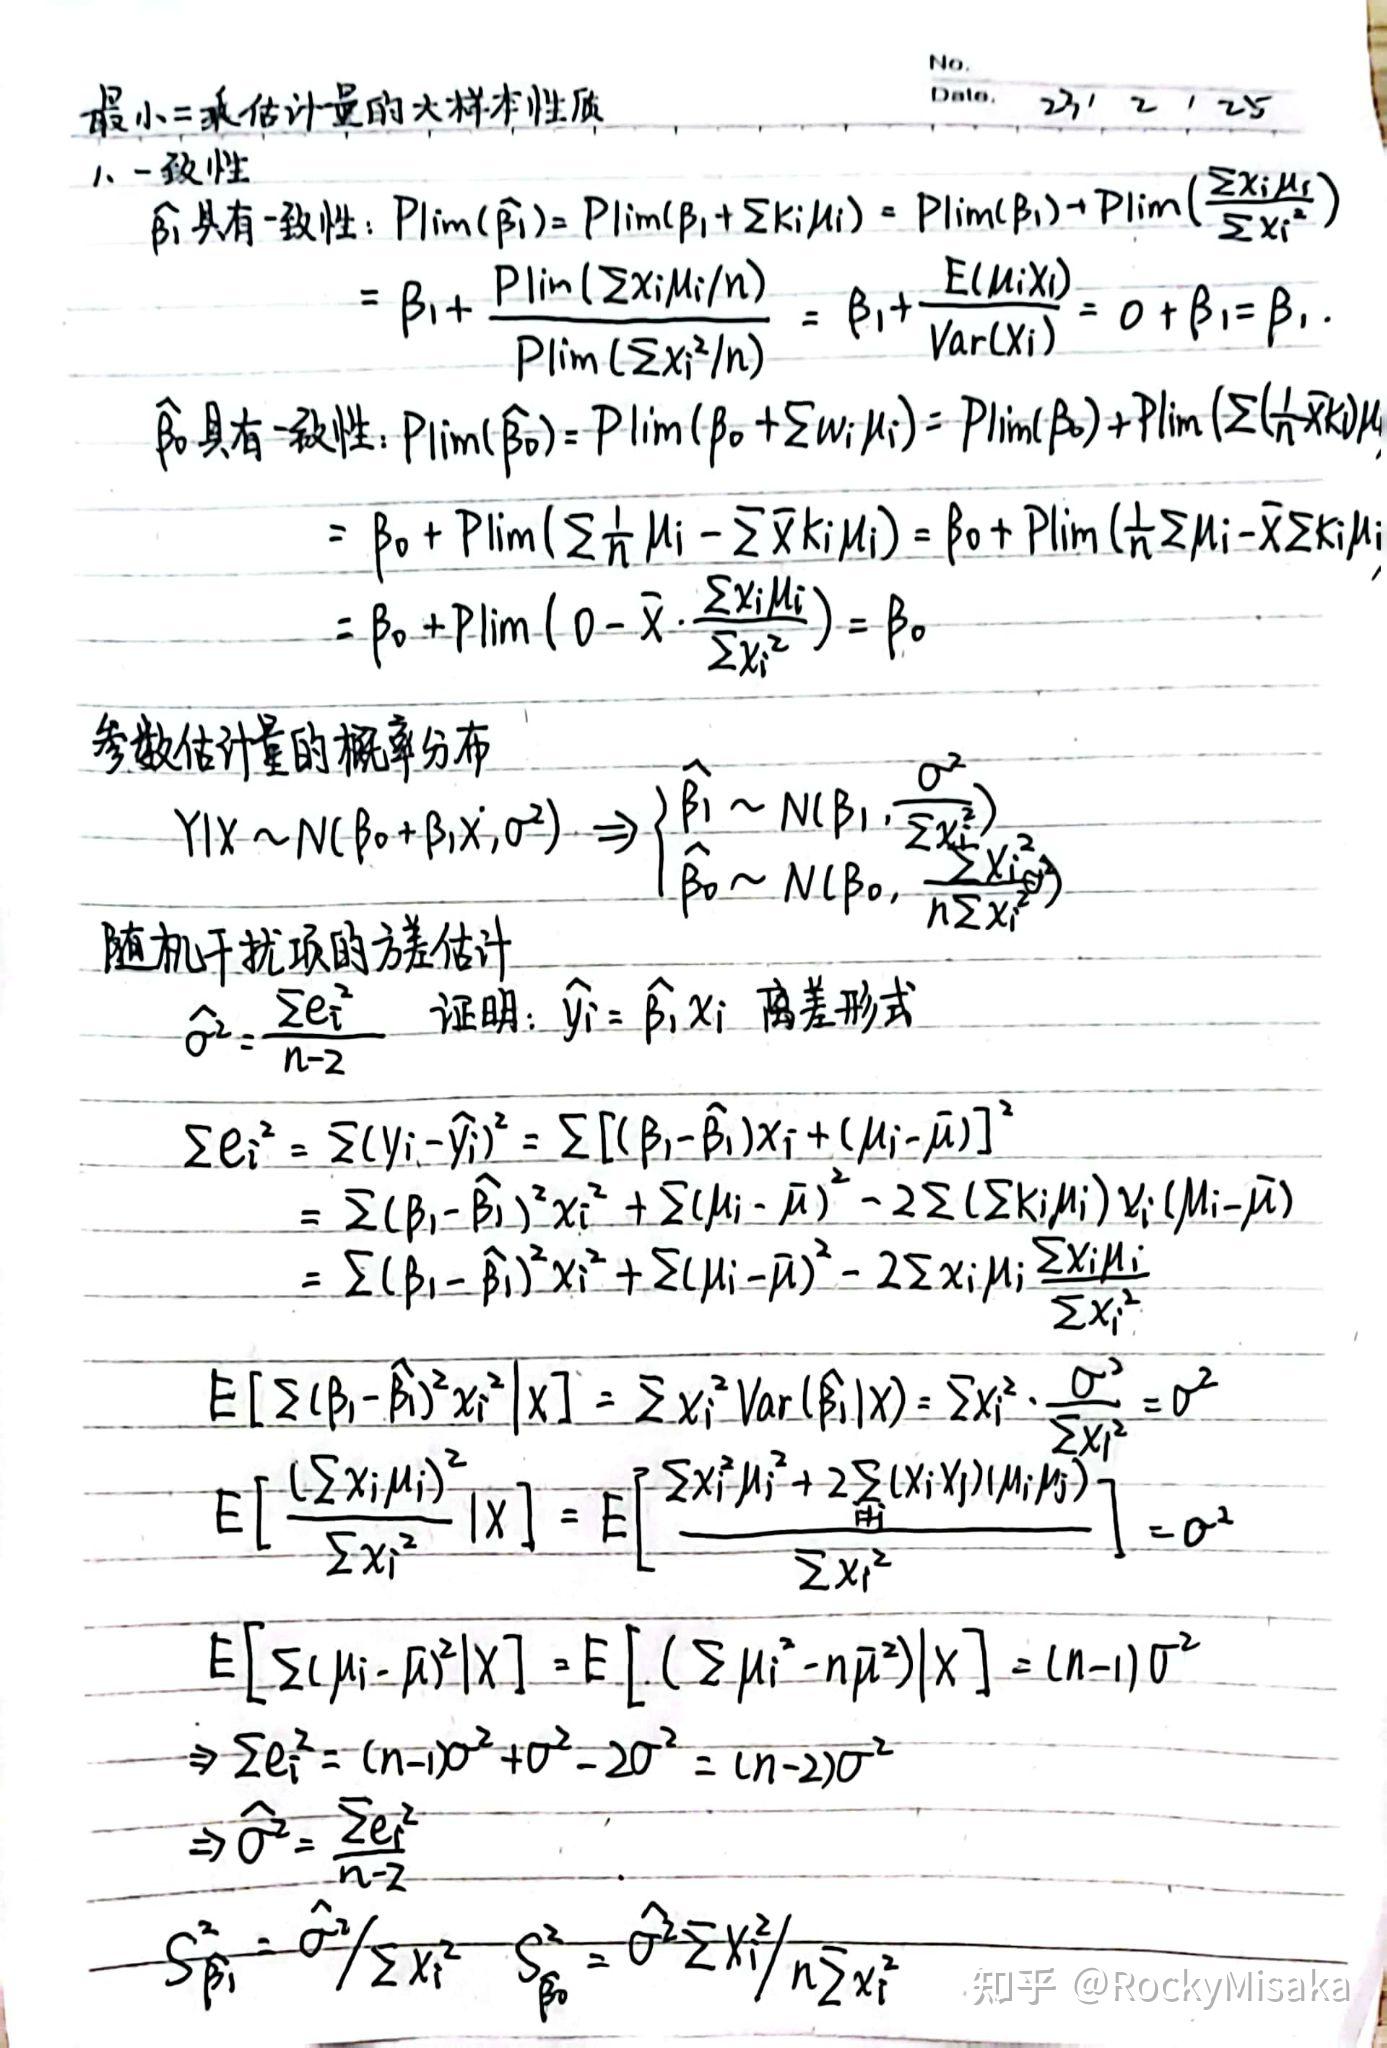 No.
Date. 23 ' 2 ' 25
最小二乘估计量的大样本性质
1、一致性
β̂₁具有一致性: Plim(β̂₁) = Plim(β₁+Σkᵢμᵢ) = Plim(β₁)+Plim(Σxᵢμᵢ/Σxᵢ²)
= β₁ + Plim(Σxᵢμᵢ/n)/Plim(Σxᵢ²/n) = β₁+E(μᵢXᵢ)/Var(Xᵢ) = 0+β₁=β₁.
β̂₀具有一致性: Plim(β̂₀) = Plim(β₀+Σwᵢμᵢ) = Plim(β₀)+Plim(Σ(1/n-X̄kᵢ)μᵢ
= β₀+Plim(Σ1/n μᵢ - ΣX̄kᵢμᵢ) = β₀+Plim(1/nΣμᵢ-X̄Σkᵢμᵢ
= β₀+Plim(0-X̄·Σxᵢμᵢ/Σxᵢ²) = β₀
参数估计量的概率分布
Y|X ~ N(β₀+β₁X, σ²) ⇒ { β̂₁ ~ N(β₁, σ²/Σxᵢ²)
β̂₀ ~ N(β₀, ΣXᵢ²/nΣxᵢ² σ²)
随机干扰项的方差估计
σ̂² = Σeᵢ²/n-2 证明: ŷᵢ = β̂₁xᵢ 离差形式
Σeᵢ² = Σ(yᵢ-ŷᵢ)² = Σ[(β₁-β̂₁)xᵢ+(μᵢ-μ̄)]²
= Σ(β₁-β̂₁)²xᵢ² + Σ(μᵢ-μ̄)² - 2Σ(Σkᵢμᵢ)xᵢ(μᵢ-μ̄)
= Σ(β₁-β̂₁)²xᵢ² + Σ(μᵢ-μ̄)² - 2Σxᵢμᵢ Σxᵢμᵢ/Σxᵢ²
E[Σ(β₁-β̂₁)²xᵢ²|X] = Σxᵢ²Var(β̂₁|X) = Σxᵢ²·σ²/Σxᵢ² = σ²
E[(Σxᵢμᵢ)²/Σxᵢ² |X] = E[Σxᵢ²μᵢ²+2Σ_{i≠j}(xᵢxⱼ)(μᵢμⱼ)/Σxᵢ²] = σ²
E[Σ(μᵢ-μ̄)²|X] = E[(Σμᵢ²-nμ̄²)|X] = (n-1)σ²
⇒ Σeᵢ² = (n-1)σ²+σ²-2σ² = (n-2)σ²
⇒ σ̂² = Σeᵢ²/n-2
S²_β̂₁ = σ̂²/Σxᵢ² S²_β̂₀ = σ̂²ΣXᵢ²/nΣxᵢ²
知乎 @RockyMisaka